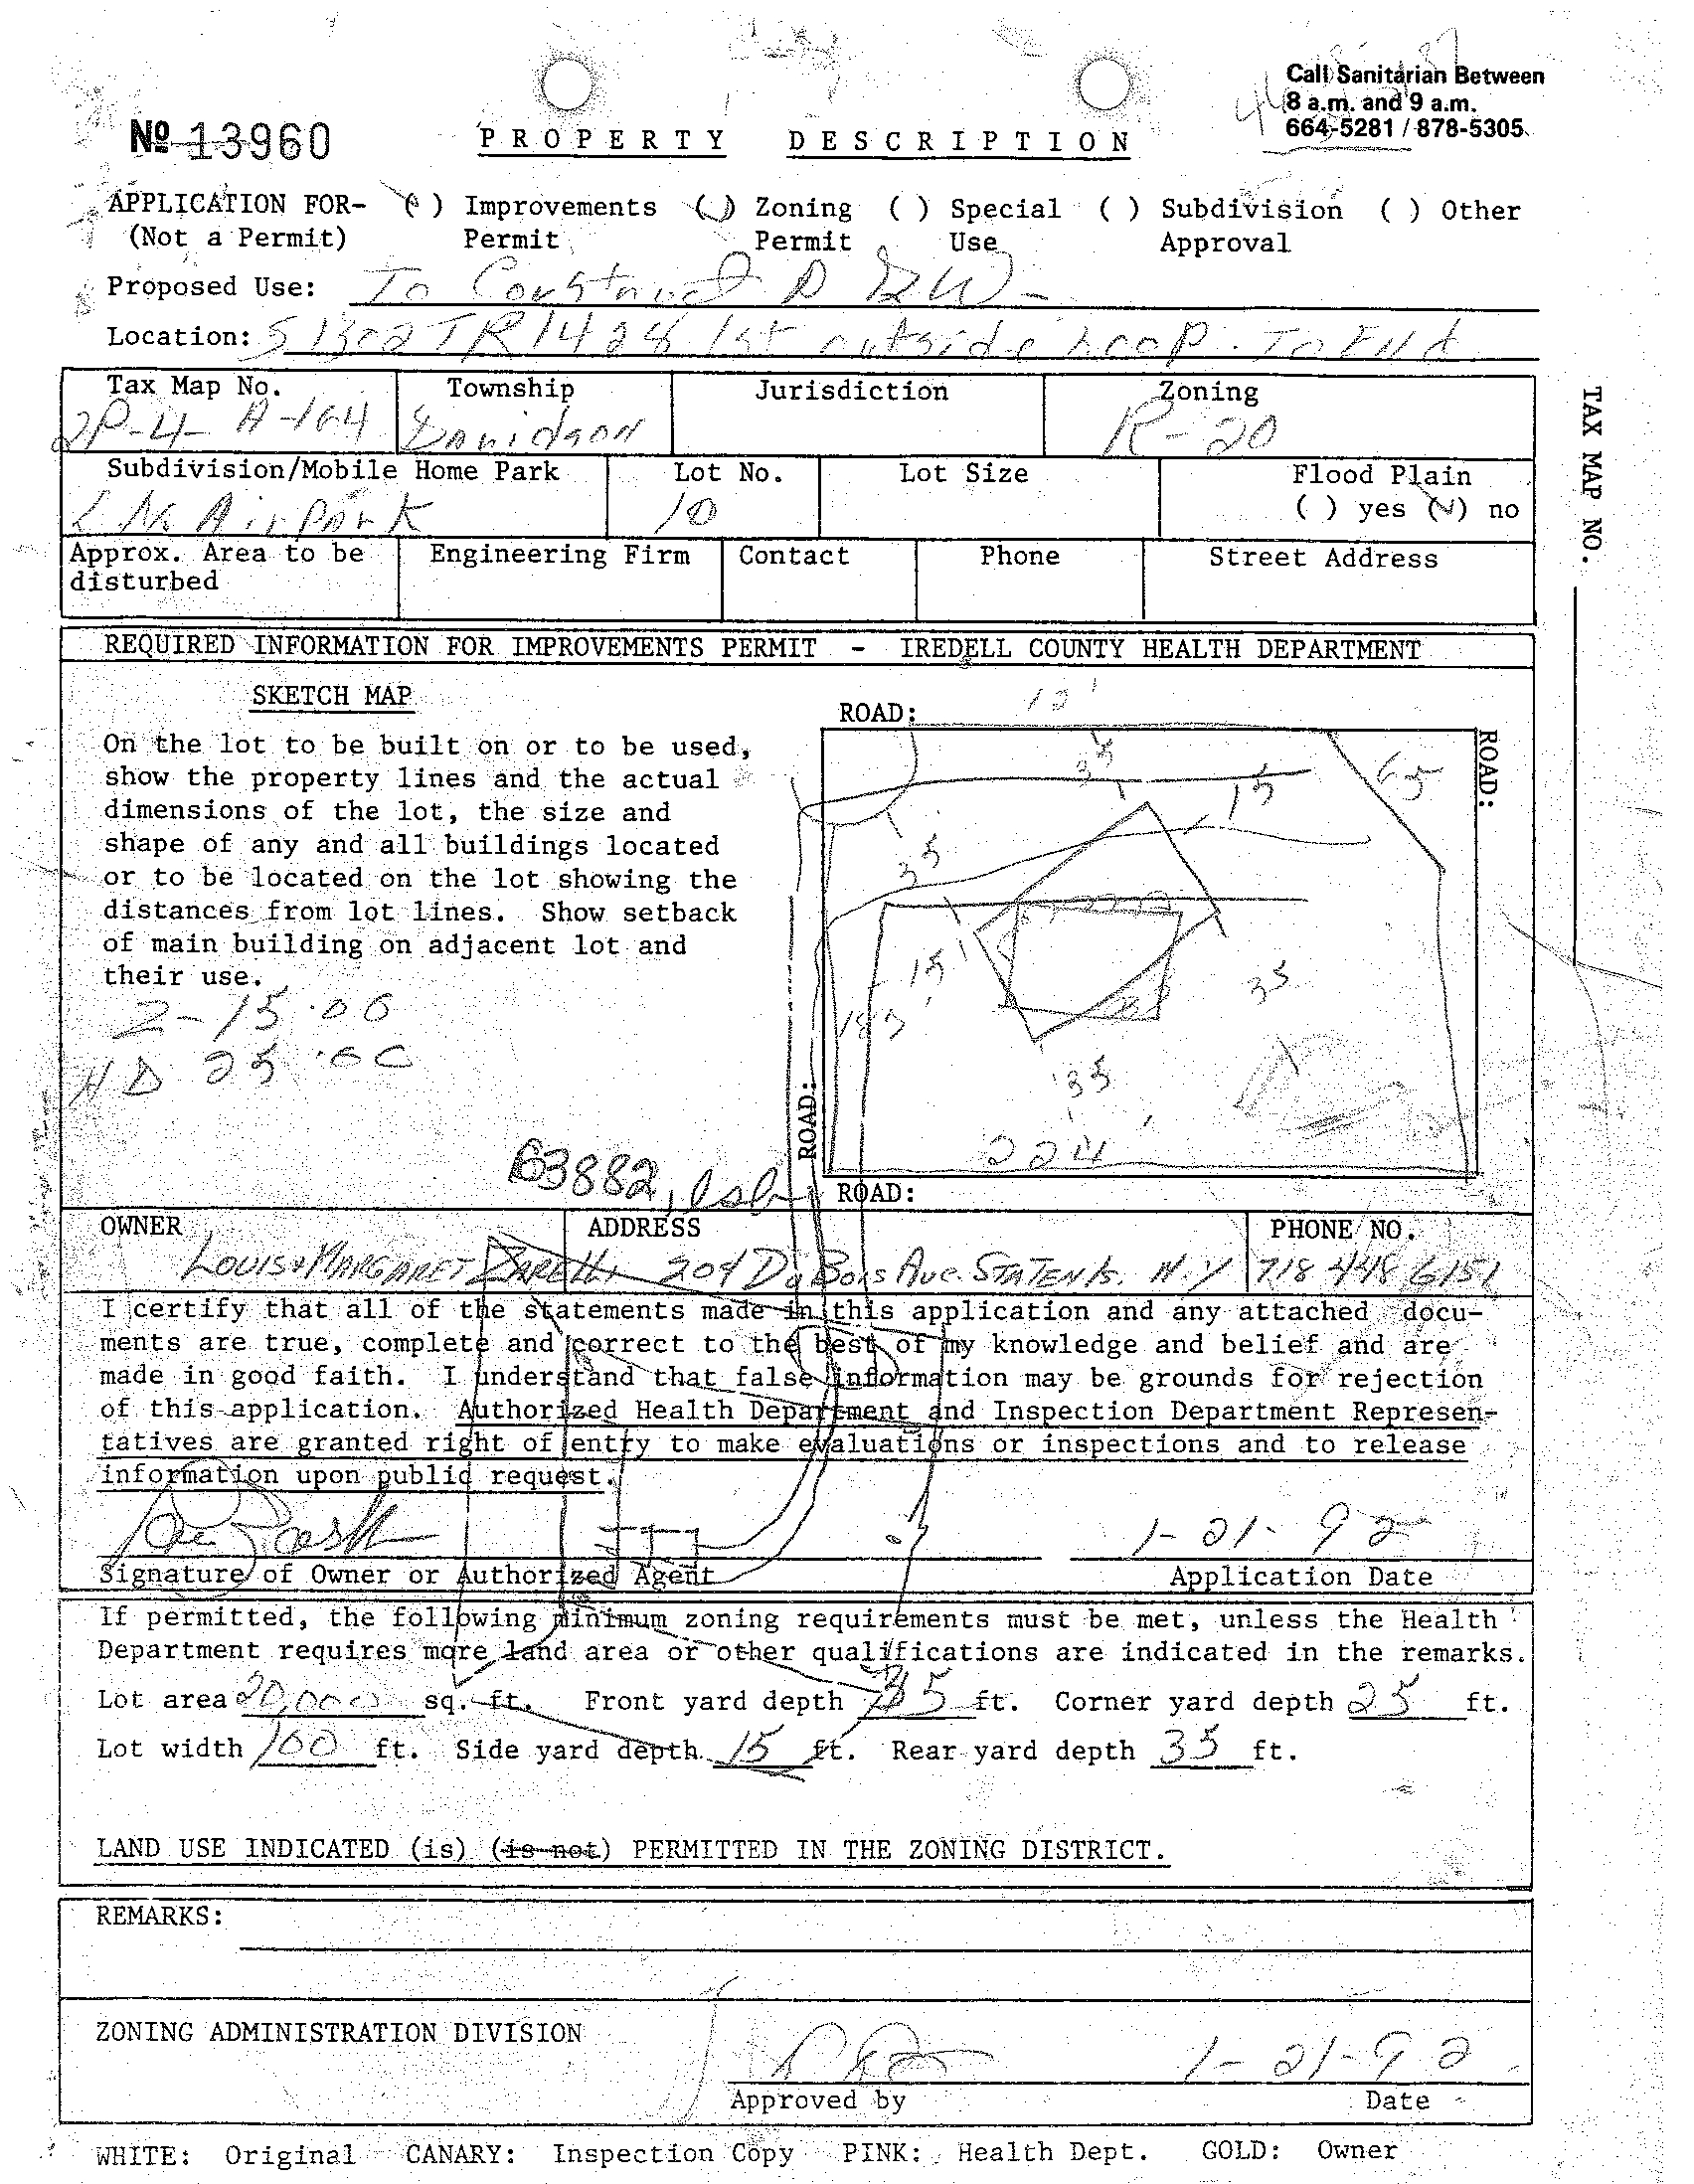 Call Sanitarian Between
8 a.m. and 9 a.m.
664-5281 / 878-5305
Nº 13960
PROPERTY DESCRIPTION
APPLICATION FOR- ( ) Improvements ( ) Zoning ( ) Special ( ) Subdivision ( ) Other
(Not a Permit) Permit Permit Use Approval
Proposed Use: To Construct A
Location: S 1302 TR 1428 1st outside Loop. To End
Tax Map No. Township Jurisdiction Zoning
2P-4- A-164 Davidson R-20
Subdivision/Mobile Home Park Lot No. Lot Size Flood Plain
L N Air Park 10 ( ) yes (√) no
Approx. Area to be Engineering Firm Contact Phone Street Address
disturbed
TAX MAP NO.
REQUIRED INFORMATION FOR IMPROVEMENTS PERMIT - IREDELL COUNTY HEALTH DEPARTMENT
SKETCH MAP
On the lot to be built on or to be used,
show the property lines and the actual
dimensions of the lot, the size and
shape of any and all buildings located
or to be located on the lot showing the
distances from lot lines. Show setback
of main building on adjacent lot and
their use.
2-15.00
HD 25.00
63882
ROAD:
ROAD:
35
15
65
35
15'
35
35
224
ROAD:
ROAD:
OWNER ADDRESS PHONE NO.
LOUIS & MARGARET ZARELLI 204 DuBois Ave. STATEN Is. N.Y 718 448 6151
I certify that all of the statements made in this application and any attached docu-
ments are true, complete and correct to the best of my knowledge and belief and are
made in good faith. I understand that false information may be grounds for rejection
of this application. Authorized Health Department and Inspection Department Represen-
tatives are granted right of entry to make evaluations or inspections and to release
information upon public request.
1-21-92
Signature of Owner or Authorized Agent Application Date
If permitted, the following minimum zoning requirements must be met, unless the Health
Department requires more land area or other qualifications are indicated in the remarks.
Lot area 20,000 sq. ft. Front yard depth 35 ft. Corner yard depth 25 ft.
Lot width 100 ft. Side yard depth 15 ft. Rear yard depth 35 ft.
LAND USE INDICATED (is) (is not) PERMITTED IN THE ZONING DISTRICT.
REMARKS:
ZONING ADMINISTRATION DIVISION
1-21-92
Approved by Date
WHITE: Original CANARY: Inspection Copy PINK: Health Dept. GOLD: Owner